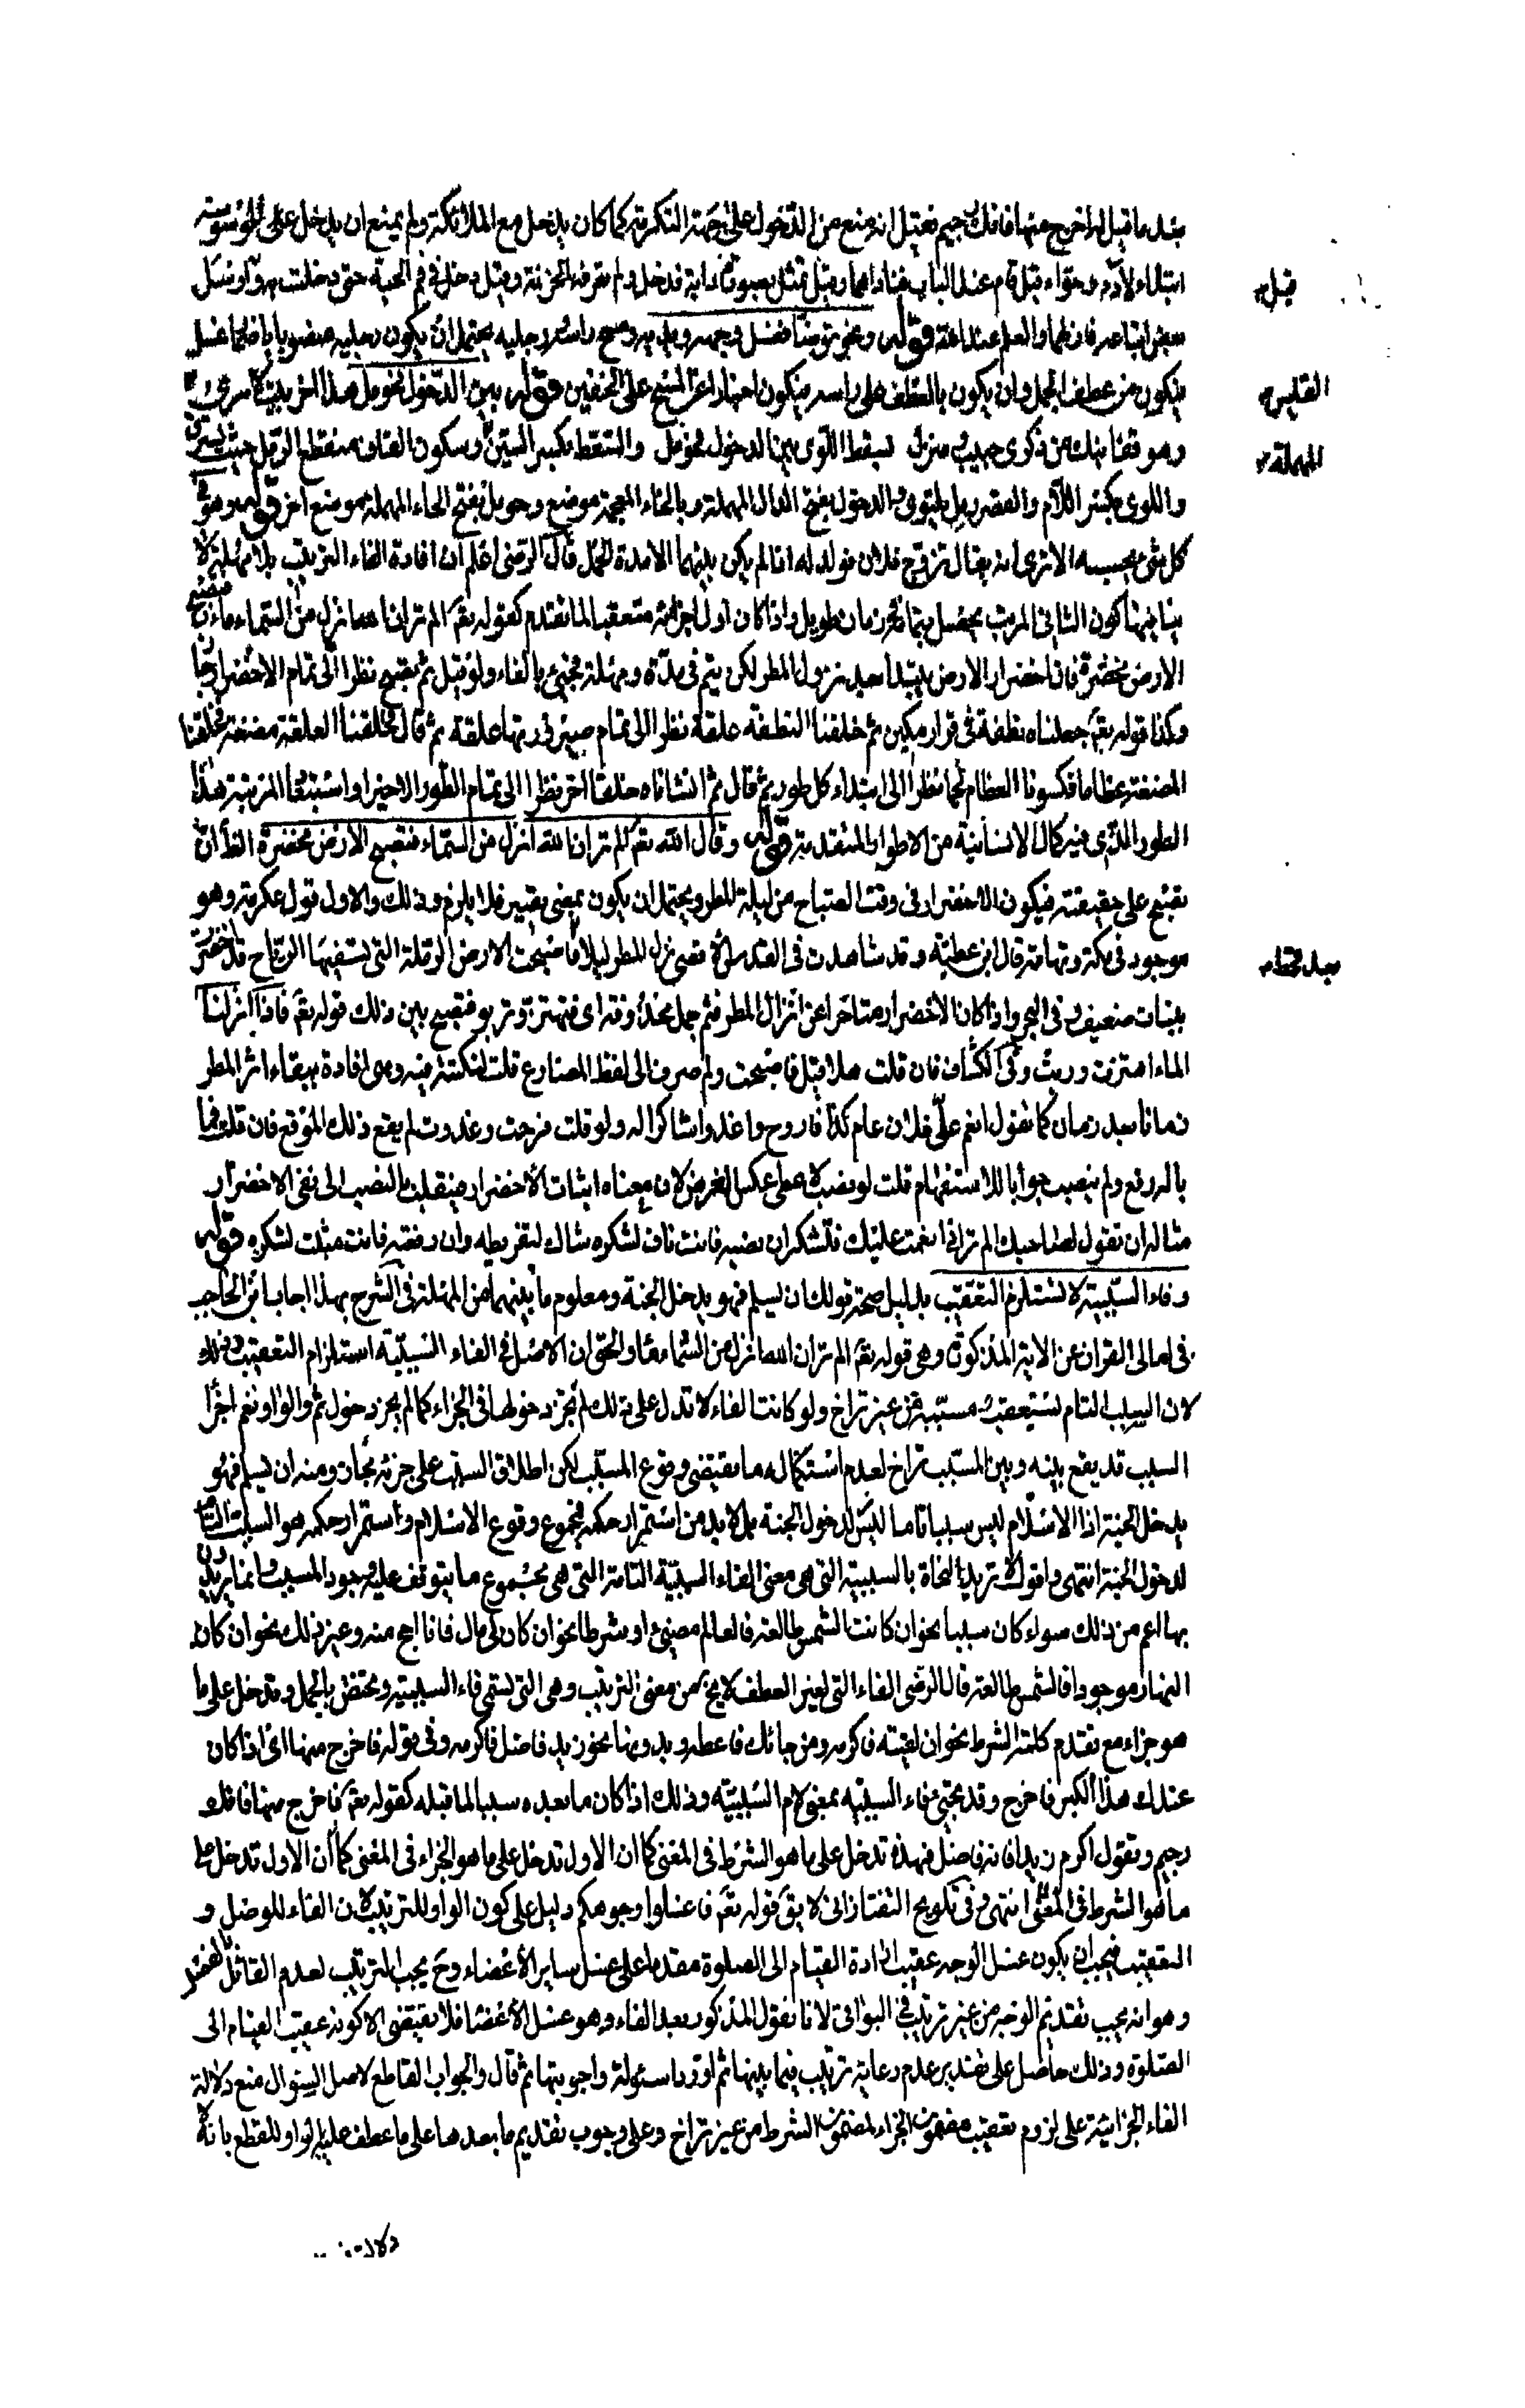 بعد ما قيل له اخرج منها فانك رجيم فقيل انه منع من الدخول على جهة التكرمة كما كان يدخل مع الملائكة ولم يمنع ان يدخل على الوسوسة
ابتلاء لآدم وحواء وقيل قام عند الباب فناداهما وقيل تمثل بصورة دابة فدخل ولم تعرفه الخزنة وقيل دخل في فم الحية حتى دخلت به وقيل ارسل
قيل
بعض اتباعه فازلهما والعلم عند الله قوله ونحو توضأ فغسل وجهه ويديه ومسح رأسه ورجليه يحتمل ان يكون رجليه منصوبا باضمار غسل
فيكون من عطف الجمل وان يكون بالعطف على راسه فيكون اخبارا عن المسح على الخفين قوله بين الدخول فحومل هذا اخر بيت لامرئ
القيس
وهو قفا نبك من ذكرى حبيب ومنزل بسقط اللوى بين الدخول فحومل والسقط بكسر السين وسكون القاف منقطع الرمل حيث يسترق
المهملة
واللوى بكسر اللام والقصر رمل يلتوي والدخول بفتح الدال المهملة وبالخاء المعجمة موضع وحومل بفتح الحاء المهملة موضع اخر قوله وهو في
كل شيء بحسبه الا ترى انه يقال تزوج فلان فولد له اذا لم يكن بينهما الا مدة الحمل قال الرضي اعلم ان افادة الفاء الترتيب بلا مهلة لا
ينافيها كون الثاني المرتب يحصل بتمامه في زمان طويل اذا كان اول اجزائه متعقبا لما تقدم كقوله تعه الم تر ان الله انزل من السماء ماء فتصبح
الارض مخضرة فان اخضرار الارض يبتدأ بعد نزول المطر لكن يتم في مدة ومهلة فجيء بالفاء ولو قيل ثم تصبح نظرا الى تمام الاخضرار جاز
وكذا قوله تعه جعلناه نطفة في قرار مكين ثم خلقنا النطفة علقة نظرا الى تمام صيرورتها علقة ثم قال فخلقنا العلقة مضغة فخلقنا
المضغة عظاما فكسونا العظام لحما نظرا الى ابتداء كل طور ثم قال ثم انشأناه خلقا اخر نظرا الى تمام الطور الاخير او استبعادا لمرتبة هذا
الطور الذي فيه كمال الانسانية من الاطوار المتقدمة قوله وقال الله تعه الم تر ان الله انزل من السماء فتصبح الارض مخضرة الظ ان
تصبح على حقيقته فيكون الاخضرار في وقت الصباح من ليلة المطر ويحتمل ان يكون بمعنى يصير فلا يلزم ذلك والاول قول عكرمة وهو
موجود في مكة وتهامة قال ابن عطية وقد شاهدت في السوس الاقصى نزل المطر ليلا فاصبحت الارض الرملة التي تسفيها الرياح قد اخضرت
بعد قحط
بنبات ضعيف وفي البحر واذا كان الاخضرار متاخرا عن انزال المطر فثم جمل محذوفة اي فتهتز وتربو فتصبح يبين ذلك قوله تعه فاذا انزلنا
الماء اهتزت وربت وفي الكشاف فان قلت هلا قيل فاصبحت ولم صرف الى لفظ المضارع قلت لنكتة فيه وهي افادة بقاء اثر المطر
زمانا بعد زمان كما تقول انعم علي فلان عام كذا فاروح واغدو شاكرا له ولو قلت فرحت وغدوت لم يقع ذلك الموقع فان قلت فما باله
بالرفع ولم ينصب جوابا للاستفهام قلت لو نصب لاعطى عكس الغرض لان معناه اثبات الاخضرار فينقلب بالنصب الى نفي الاخضرار
مثاله ان تقول لصاحبك الم تر اني انعمت عليك فتشكر ان نصبته فانت ناف لشكره شاك لتفريطه وان رفعته فانت مثبت لشكره قوله
وفاء السببية لا تستلزم التعقيب بدليل صحة قولك ان يسلم فهو يدخل الجنة ومعلوم ما بينهما من المهلة في الشرح بهذا اجاب ابن الحاجب
في امالي القران عن الاية المذكورة وهي قوله تعه الم تر ان الله انزل من السماء ماء والحق ان الاصل في الفاء السببية استلزام التعقيب وذلك
لان السبب التام يستعقب مسببه من غير تراخ ولو كانت الفاء لا تدل على ذلك لم يجز دخولها في الجزاء كما لم يجز دخول ثم والواو ونعم اجزاء
السبب قد يقع بينه وبين المسبب تراخ لعدم استكماله ما يقتضي وقوع المسبب لكن اطلاق السبب على جزئه مجاز ومنه ان يسلم فهو
يدخل الجنة اذ الاسلام ليس سببا تاما لدخول الجنة بل لا بد من استمرار حكمه فمجموع وقوع الاسلام واستمرار حكمه هو السبب التام
لدخول الجنة انتهى واقول لا تريد النحاة بالسببية التي هي معنى الفاء السببية التامة التي هي مجموع ما يتوقف عليه وجود المسبب وانما يريدون
بها اعم من ذلك سواء كان سببا نحو ان كانت الشمس طالعة فالعالم مضيء او شرطا نحو ان كان لي مال فانا احج منه وغير ذلك نحو ان كان
النهار موجودا فالشمس طالعة قال الرضي الفاء التي لغير العطف لا يخ من معنى الترتيب وهي التي تسمى فاء السببية ويختص بالجمل وتدخل على ما
هو جزاء مع تقدم كلمة الشرط نحو ان لقيته فاكرمه ومن جاءك فاعطه وبدونها نحو زيد فاضل فاكرمه وفي قوله فاخرج منها اي اذا كان
عندك هذا الكبر فاخرج وقد يجيء فاء السببية بمعنى لام السببية وذلك اذا كان ما بعده سببا لما قبله كقوله تعه فاخرج منها فانك
رجيم وتقول اكرم زيدا فانه فاضل فهذه تدخل على ما هو الشرط في المعنى كما ان الاول تدخل على ما هو الجزاء في المعنى كما ان الاول تدخل على
ما هو الشرط في المعنى انتهى وفي تلويح التفتازاني لا يق قوله تعه فاغسلوا وجوهكم دليل على كون الواو للترتيب لان الفاء للوصل و
التعقيب فيجب ان يكون غسل الوجه عقيب ارادة القيام الى الصلوة مقدما على غسل ساير الاعضاء وح يجب الترتيب لعدم القائل بالفصل
وهو انه يجب تقديم الوجه من غير ترتيب في البواقي لانا نقول المذكور بعد الفاء وهو غسل الاعضاء فلا يقتضي الا كونه عقيب القيام الى
الصلوة وذلك حاصل على تقدير عدم رعاية ترتيب فيما بينها ثم اورد اسئولة واجوبتها ثم قال والجواب القاطع لاصل السؤال منع دلالة
الفاء الجزائية على لزوم تعقيب مضمون الجزاء لمضمون الشرط من غير تراخ وعلى وجوب تقديم ما بعدها على ما عطف عليه بالواو للقطع بانه لا
دلالة